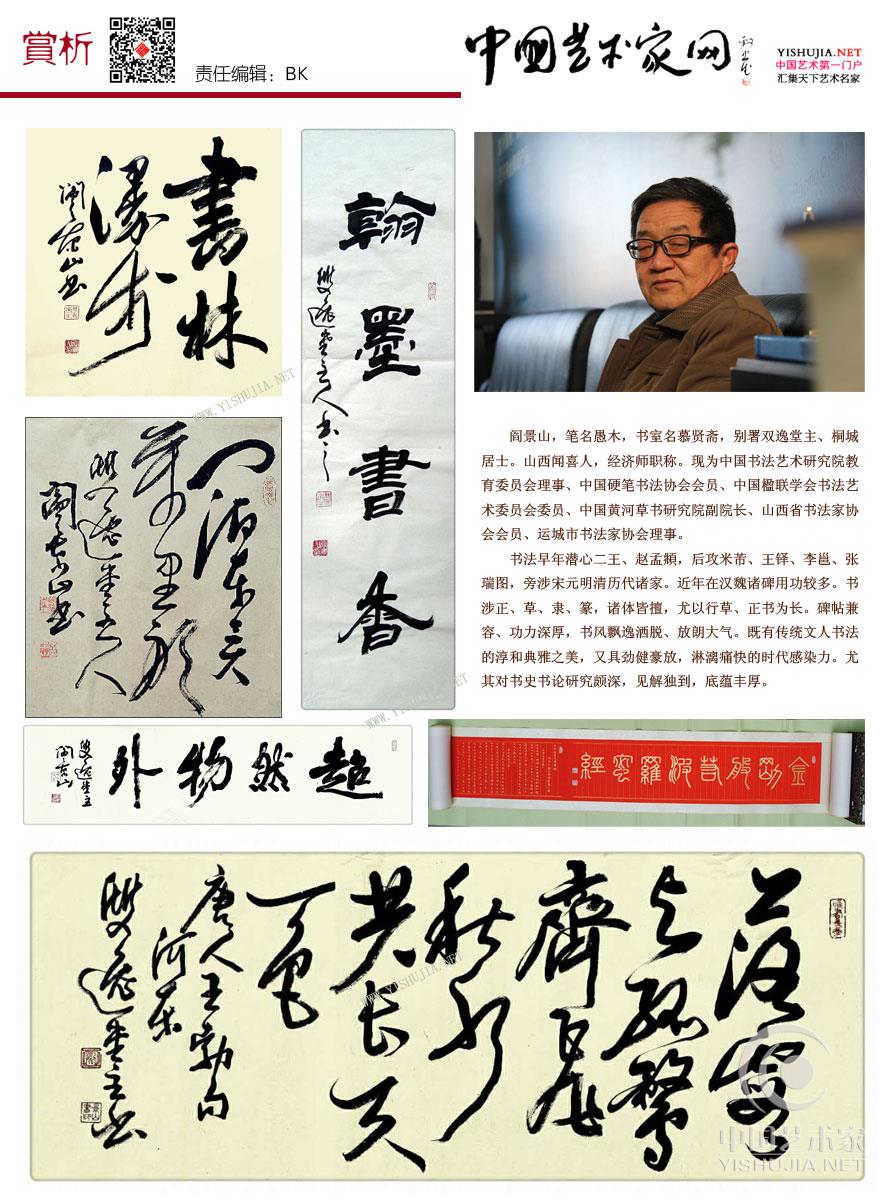 赏析
责任编辑：BK
中国艺术家网
YISHUJIA.NET
中国艺术第一门户
汇集天下艺术名家
書林
漫步
阎景山书
翰墨書香
双逸堂主人书之
阎景山，笔名愚木，书室名慕贤斋，别署双逸堂主、桐城
居士。山西闻喜人，经济师职称。现为中国书法艺术研究院教
育委员会理事、中国硬笔书法协会会员、中国楹联学会书法艺
术委员会委员、中国黄河草书研究院副院长、山西省书法家协
会会员、运城市书法家协会理事。
书法早年潜心二王、赵孟頫，后攻米芾、王铎、李邕、张
瑞图，旁涉宋元明清历代诸家。近年在汉魏诸碑用功较多。书
涉正、草、隶、篆，诸体皆擅，尤以行草、正书为长。碑帖兼
容、功力深厚，书风飘逸洒脱、放朗大气。既有传统文人书法
的淳和典雅之美，又具劲健豪放，淋漓痛快的时代感染力。尤
其对书史书论研究颇深，见解独到，底蕴丰厚。
双逸堂主人
阎景山书
超然物外
雙逸堂主
阎景山
金剛般若波羅蜜經
落霞
与孤鶩
齊飛
秋水
共長天
一色
唐人王勃句
河東
雙逸堂主书
WWW.YISHUJIA.NET
WWW.YISHUJIA.NET
WWW.YISHUJIA.NET
中国艺术家
YISHUJIA.NET